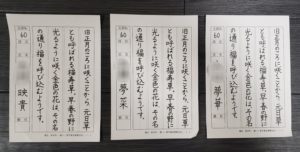 旧正月のころに咲くことから、元日草
とも呼ばれる福寿草。早春の野に
光るように咲く金色の花は、その名
の通り福を呼び込むようです。
60
旧正月のころに咲くことから、元日草
とも呼ばれる福寿草。早春の野に
光るように咲く金色の花は、その名
の通り福を呼び込むようです。
60
夢菜
旧正月のころに咲くことから、元日草
とも呼ばれる福寿草。早春の野に
光るように咲く金色の花は、その名
の通り福を呼び込むようです。
60
映貴